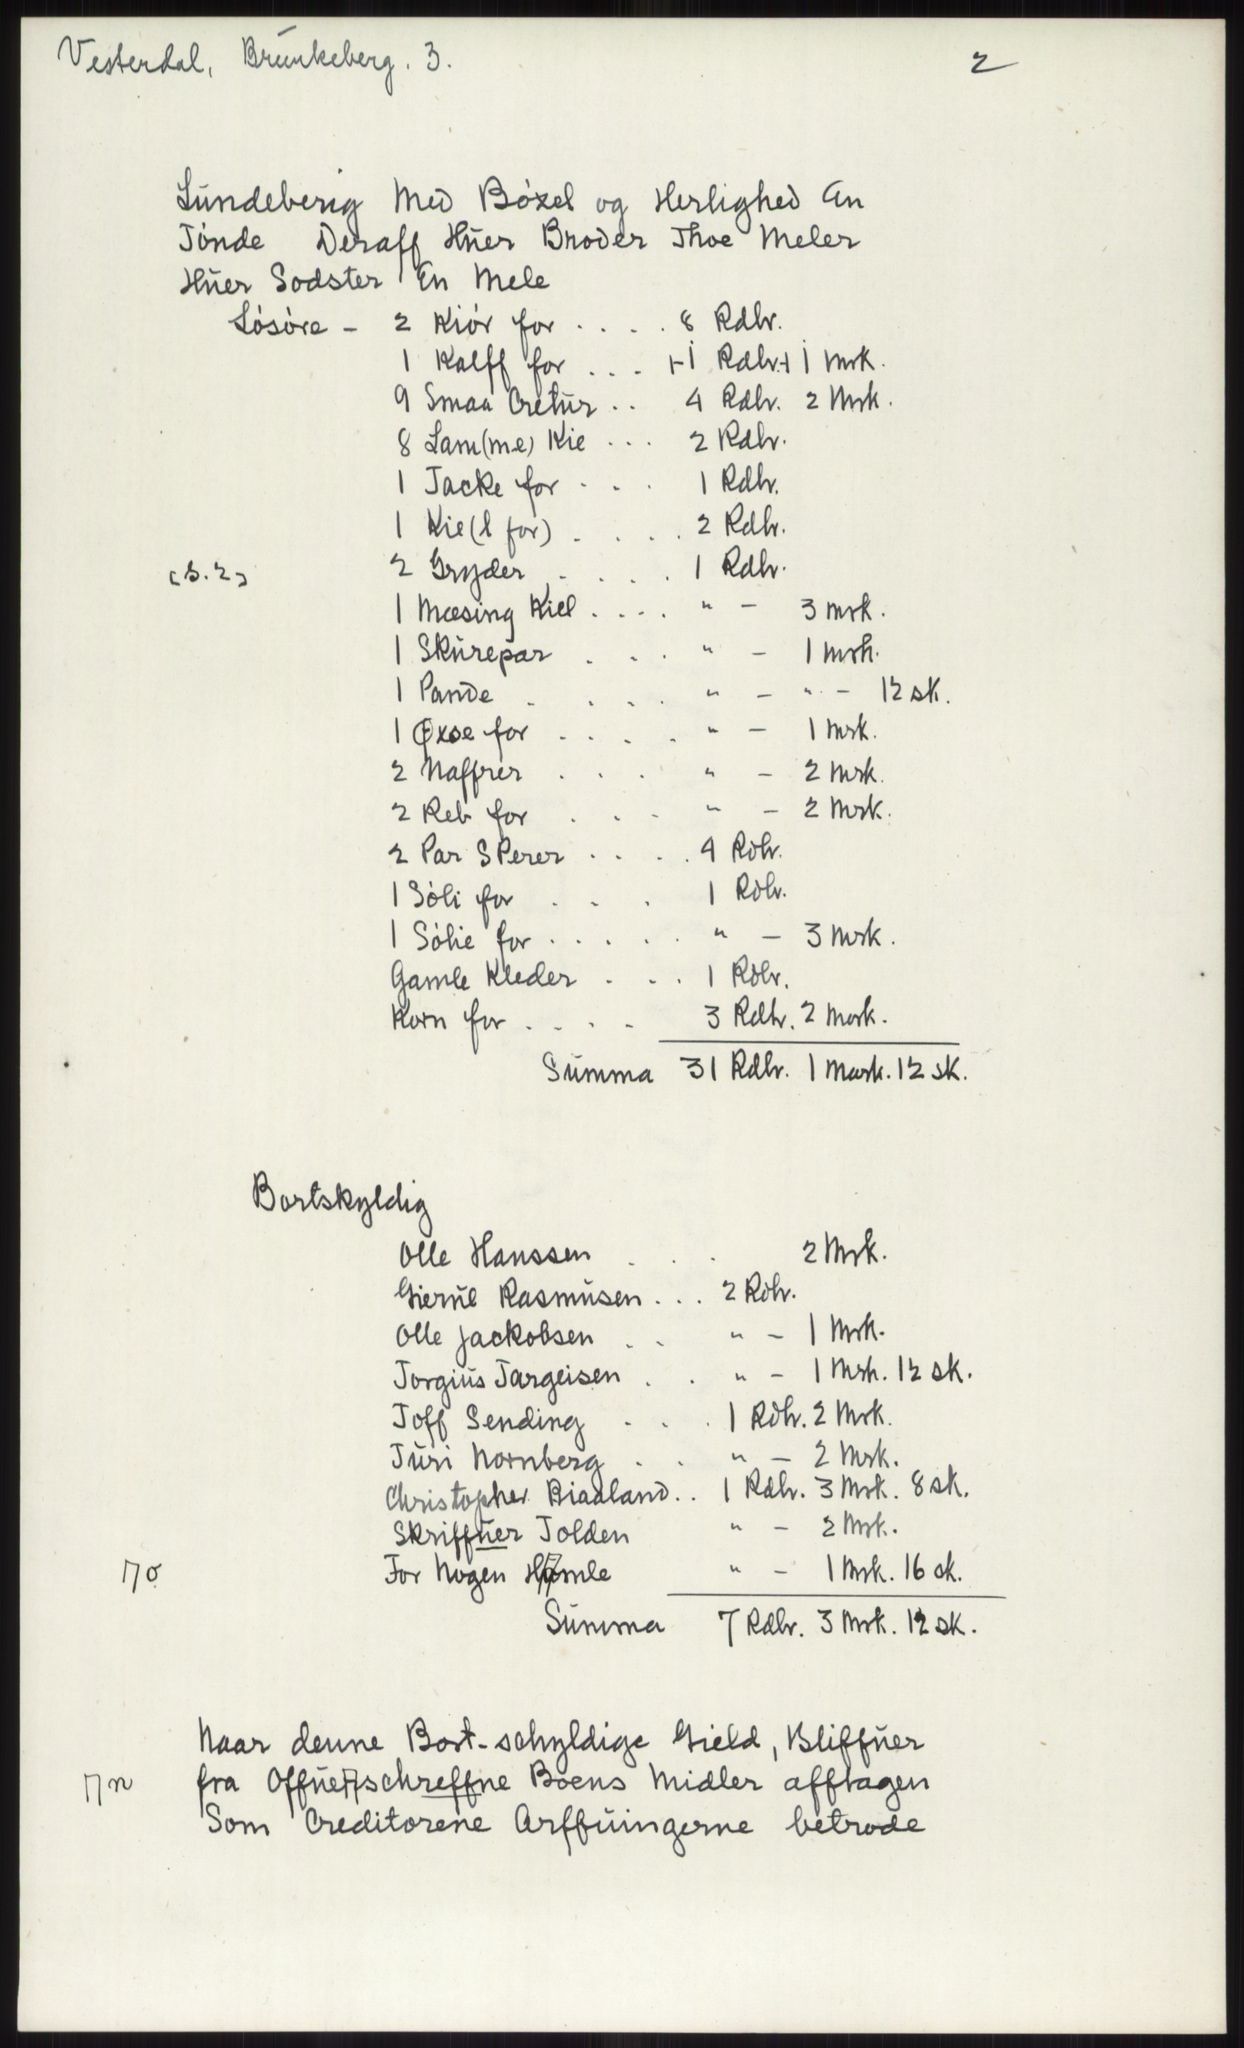 Vesterdal, Brunkeberg. 3. 2
Lundeberig Med Bóxel og Herlighed En
Tónde Deraff Huer Broder Thoe Meler
Huer Sodster En Mele
Lósóre - 2 Kiór for . . . . 8 Rdlr.
1 Kalff for . . . +1 Rdlr.+ 1 Mrk.
9 Smaa Cretur . . 4 Rdlr. 2 Mrk.
8 Lam(me) Kie . . . 2 Rdlr.
1 Jacke for . . . 1 Rdlr.
1 Kie(l for) . . . . 2 Rdlr.
[S. 2] 2 Gryder . . . . 1 Rdlr.
1 Mæsing Kiel . . . . " - 3 mrk.
1 Skurepar . . . " - 1 mrk.
1 Pande . . . . " - " - 12 sk.
1 Øxse for . . . . " - 1 mrk.
2 Naffrer . . . " - 2 mrk.
2 Reb for . . . " - 2 Mrk.
2 Par SPerer . . . . 4 Rdlr.
1 Sóli for . . . 1 Rdlr.
1 Sólie for . . . . . " - 3 Mrk.
Gamle Kleder . . . 1 Rdlr.
Korn for . . . . 3 Rdlr. 2 Mark.
Summa 31 Rdlr. 1 Mark. 12 sk.
Bortskyldig
Olle Hanssen . . . 2 Mrk.
Gierul Rasmusen . . . 2 Rdlr.
Olle Jackobsen . . " - 1 Mrk.
Jorgius Targeisen . . " - 1 Mrk. 12 sk.
Joff Sending . . . 1 Rdlr. 2 Mrk.
Juri Nornberg . . " - 2 Mrk.
Christopher Biaaland . . 1 Rdlr. 3 Mrk. 8 sk.
Skriffuer Tolden " - 2 Mrk.
⁊ o For Nogen Hmle " - 1 Mrk. 16 sk.
Summa 7 Rdlr. 3 Mrk. 12 sk.
Naar denne Bort-schyldige Gield, Bliffuer
⁊ n fra Offueschreffne Boens Midler afftagen
Som Creditorene Arffuingerne betrode